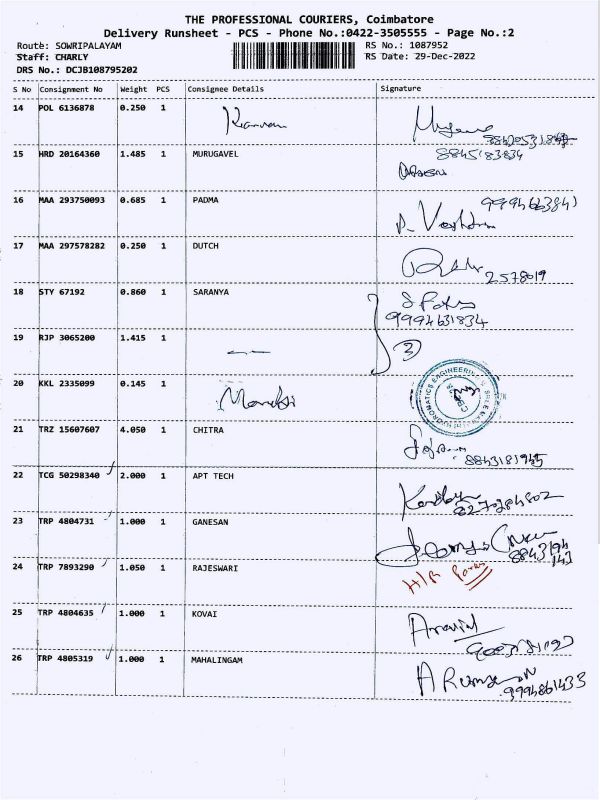 THE PROFESSIONAL COURIERS, Coimbatore
Delivery Runsheet - PCS - Phone No.:0422-3505555 - Page No.:2
Route: SOWRIPALAYAM RS No.: 1087952
Staff: CHARLY RS Date: 29-Dec-2022
DRS No.: DCJB108795202
S No Consignment No Weight PCS Consignee Details Signature
14 POL 6136878 0.250 1
15 HRD 20164360 1.485 1 MURUGAVEL 8845183834
16 MAA 293750093 0.685 1 PADMA
17 MAA 297578282 0.250 1 DUTCH
2578019
18 STY 67192 0.860 1 SARANYA
9994631834
19 RJP 3065200 1.415 1 3
20 KKL 2335099 0.145 1
21 TRZ 15607607 4.050 1 CHITRA
22 TCG 50298340 2.000 1 APT TECH
8270284802
23 TRP 4804731 1.000 1 GANESAN
8843194
143
24 TRP 7893290 1.050 1 RAJESWARI
25 TRP 4804635 1.000 1 KOVAI
26 TRP 4805319 1.000 1 MAHALINGAM
9994861433